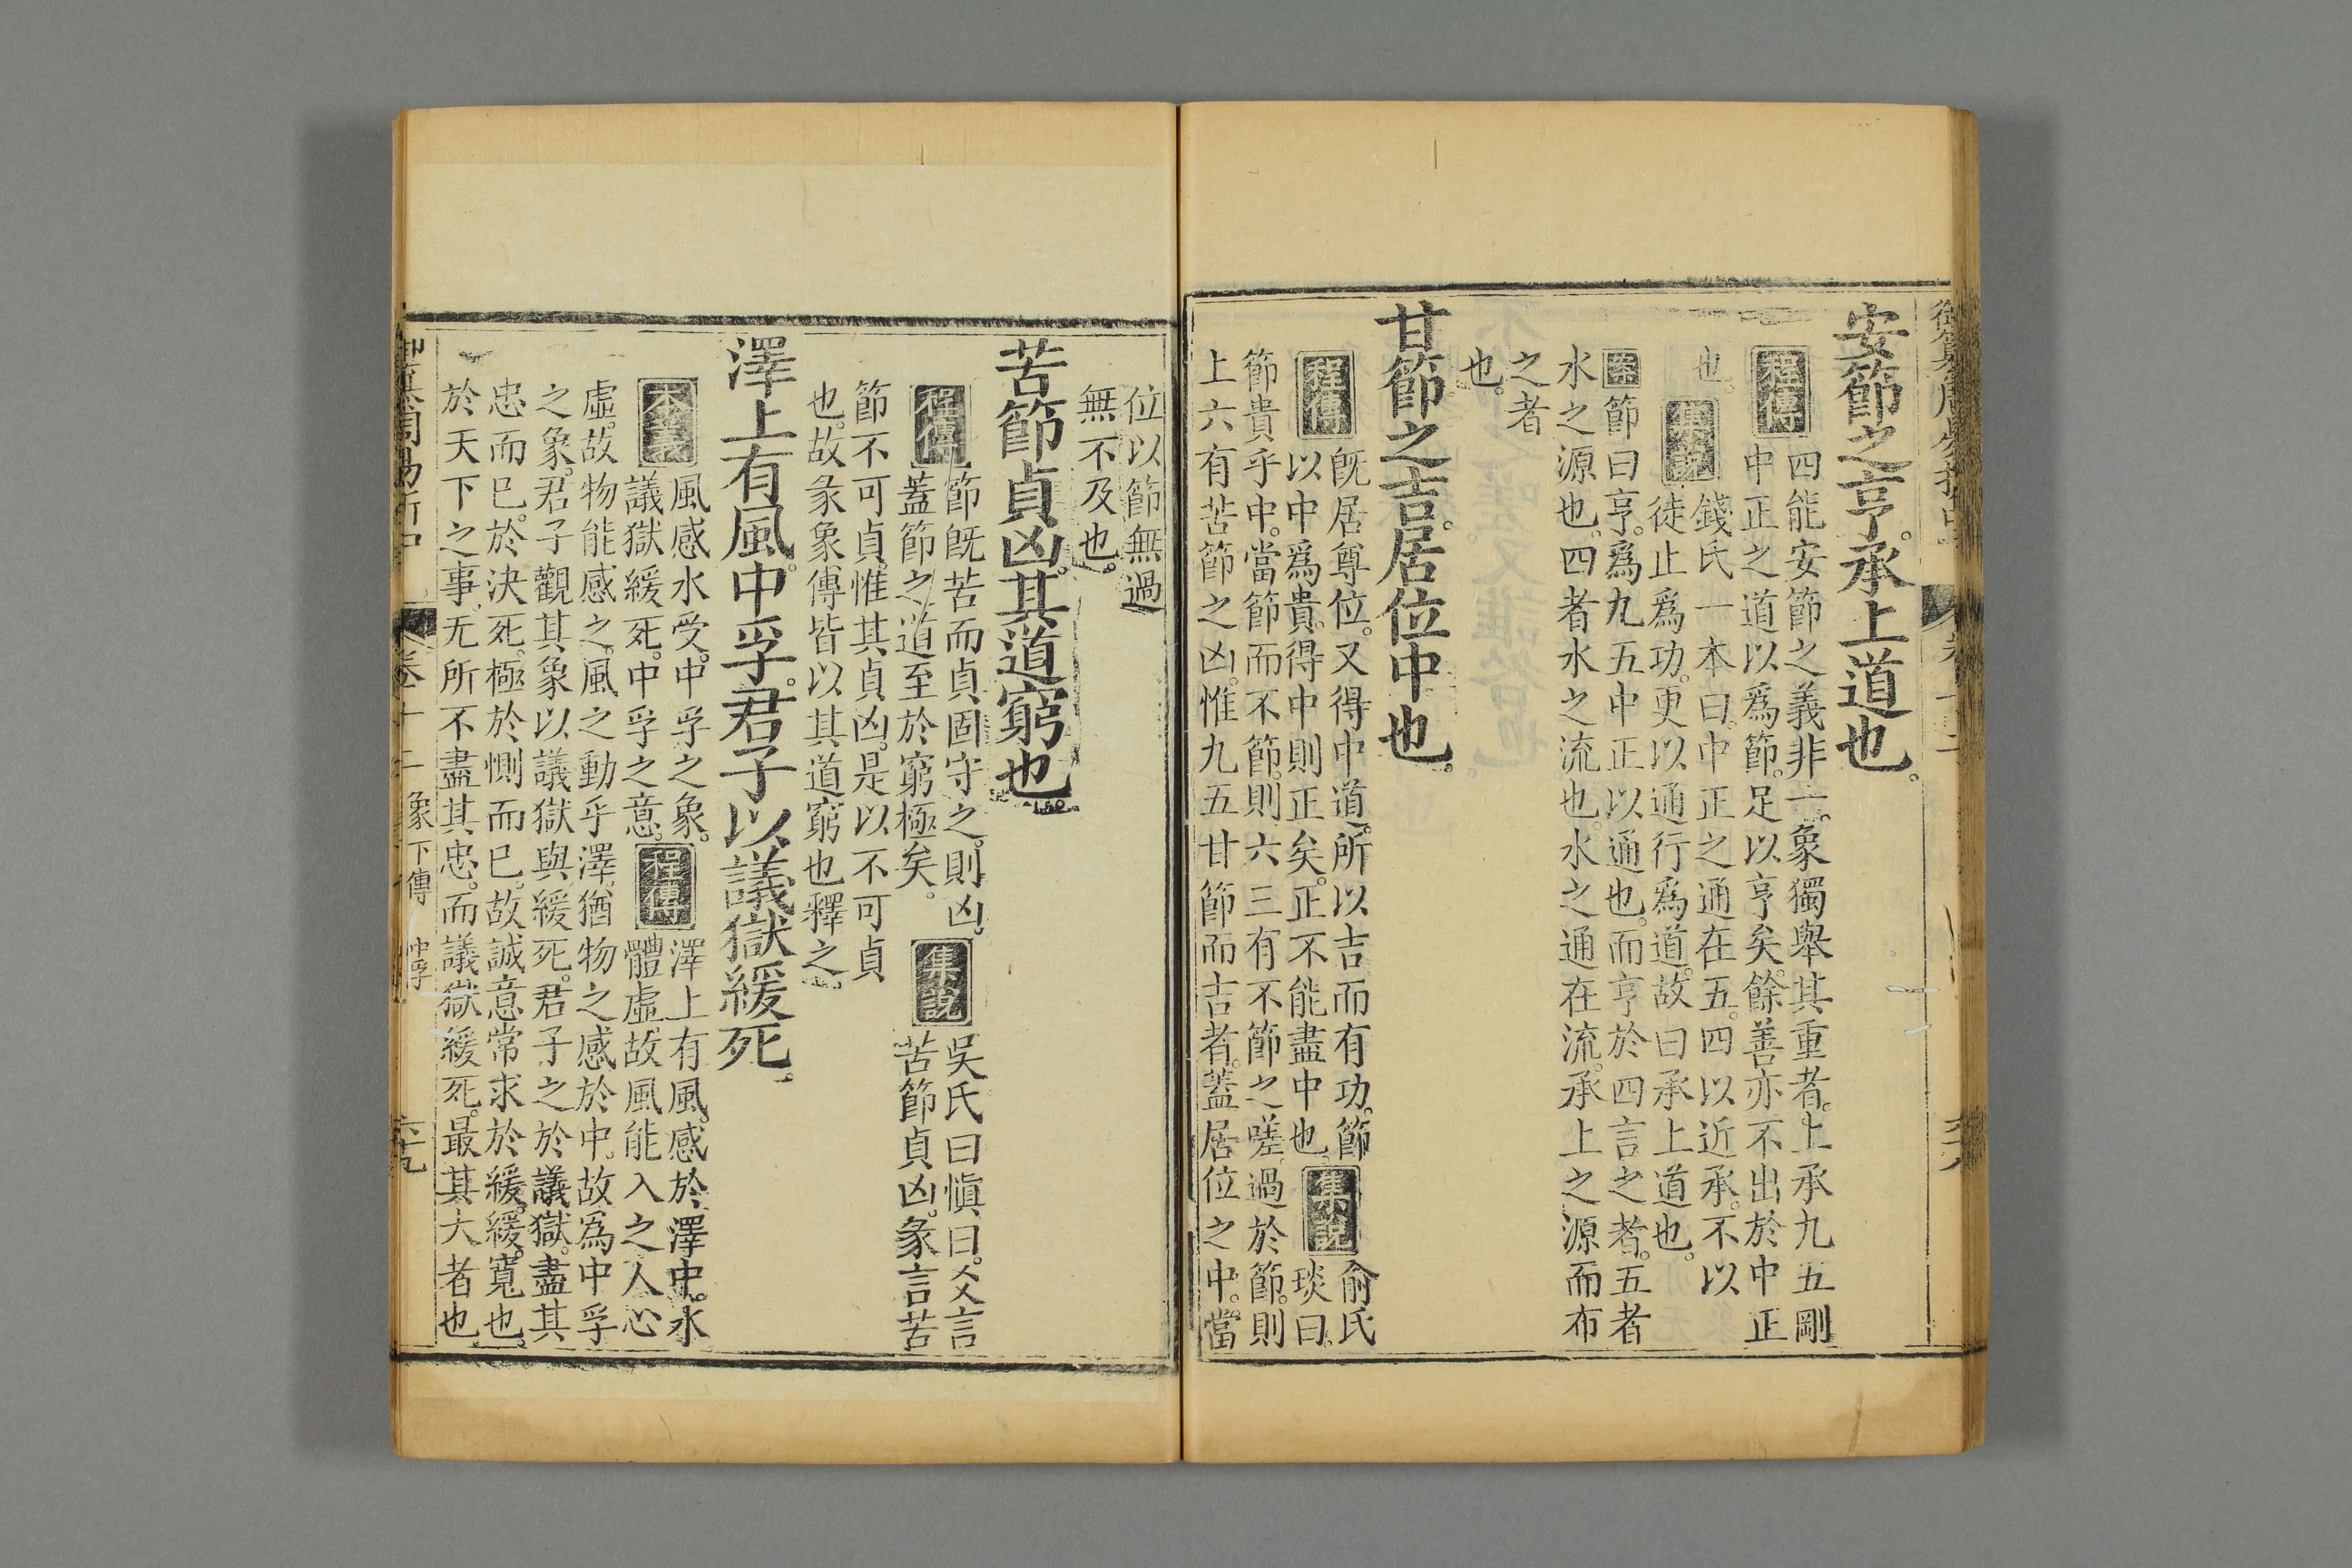 御纂周易折中
安節之亨。承上道也。
程傳 四能安節之義非一。象獨舉其重者。上承九五剛
中正之道以爲節。足以亨矣。餘善亦不出於中正
也。集說 錢氏一本曰。中正之通在五。四以近承。不以
徒止爲功。更以通行爲道。故曰承上道也。
案 節曰亨。爲九五中正以通也。而亨於四言之者。五者
水之源也。四者水之流也。水之通在流。承上之源而布
之者
也。
甘節之吉。居位中也。
程傳 既居尊位。又得中道。所以吉而有功。節
以中爲貴。得中則正矣。正不能盡中也。集說 俞氏
琰曰。
節貴乎中。當節而不節。則六三有不節之嗟。過於節。則
上六有苦節之凶。惟九五甘節而吉者。蓋居位之中。當
位以節無過
無不及也。
苦節貞凶。其道窮也。
程傳 節既苦而貞固守之。則凶。
蓋節之道至於窮極矣。集說 吳氏曰愼曰。爻言
苦節貞凶。彖言苦
節不可貞。惟其貞凶。是以不可貞
也。故彖象傳皆以其道窮也釋之。
澤上有風。中孚。君子以議獄緩死。
本義 風感水受。中孚之象。
議獄緩死。中孚之意。程傳 澤上有風。感於澤中。水
體虛。故風能入之。人心
虛。故物能感之。風之動乎澤。猶物之感於中。故爲中孚
之象。君子觀其象以議獄與緩死。君子之於議獄。盡其
忠而已。於決死。極於惻而已。故誠意常求於緩。緩。寬也。
於天下之事。无所不盡其忠。而議獄緩死。最其大者也。
卷十二 象下傳 中孚 六十九